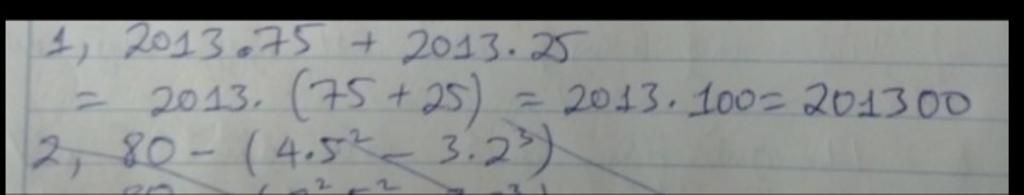 1, 2013.75 + 2013.25
= 2013. (75 + 25) = 2013. 100 = 201300
2, 80 - (4.5² - 3.2³)